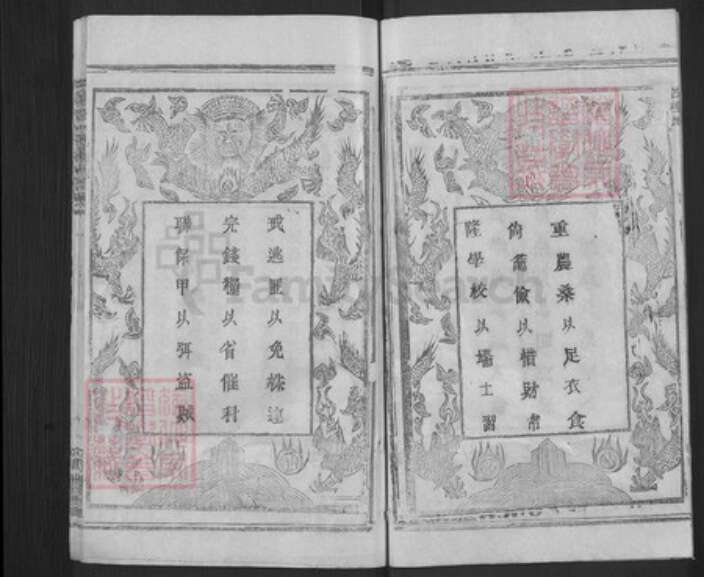 重農桑以足衣食
尚節儉以惜財常
隆學校以端士習
戒逃匿以免株連
完錢糧以省催科
聯保甲以弭盜賊
FamilySearch